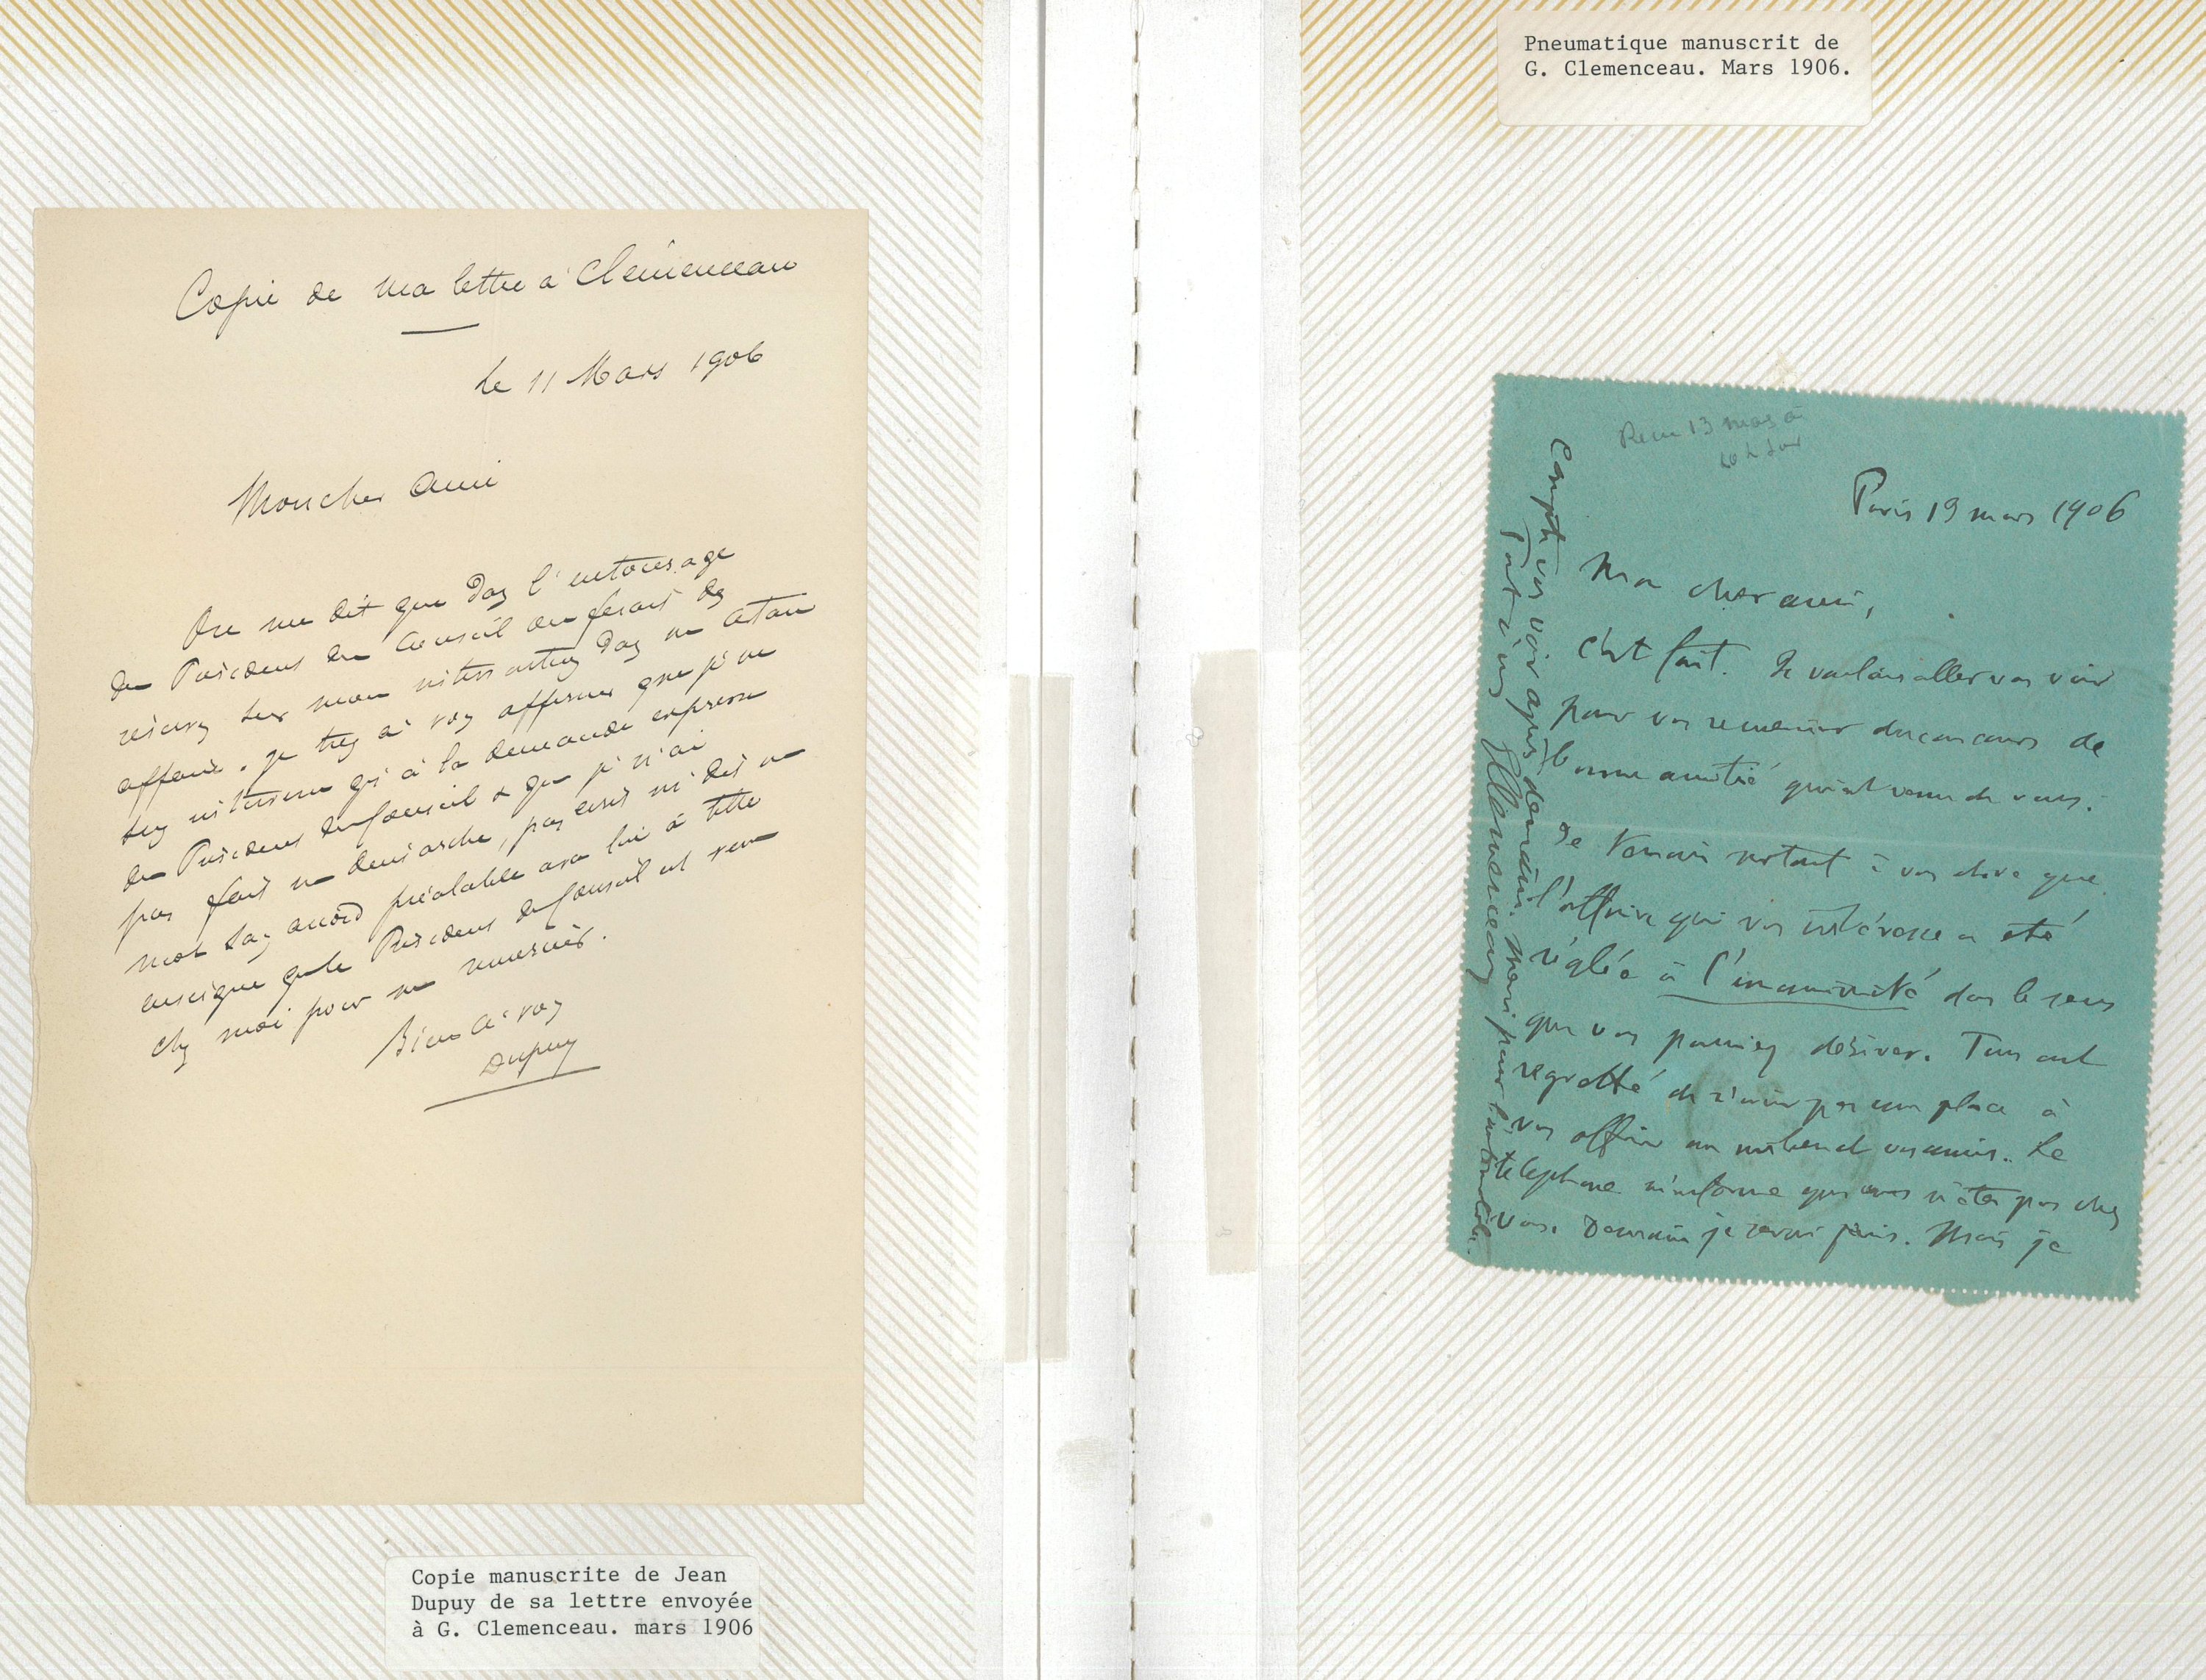 Copie de ma lettre à Clémenceau
le 11 Mars 1906
Mon cher Ami
On me dit que dans l'entourage
du Président du Conseil on ferait des
réserves sur mon intervention dans
affaire. Je tiens à vous affirmer que je ne
suis intervenu qu'à la demande expresse
du Président du Conseil & que je n'ai
pas fait une démarche, pas écrit ni dit un
mot sans accord préalable avec lui à telle
enseigne que le Président du Conseil est venu
chez moi pour me remercier.
Bien à vous
Dupuy
Copie manuscrite de Jean
Dupuy de sa lettre envoyée
à G. Clemenceau. mars 1906
Pneumatique manuscrit de
G. Clemenceau. Mars 1906.
Reçu 13 mars à
10 h soir
Paris 13 mars 1906
Mon cher ami,
C'est fait. Je voulais aller vous voir
pour vous remercier du concours de
bonne amitié qui est venu de vous.
Je tenais surtout à vous dire que
l'affaire qui vous intéresse a été
réglée à l'unanimité dans le sens
que vous pouviez désirer. Tous ont
regretté de n'avoir pas une place à
vous offrir au milieu de vos amis. Le
téléphone m'informe que vous n'êtes pas chez
vous. Demain je serai pris. Mais je
compte vous voir après-demain. Merci pour
Tout à vous
G Clemenceau